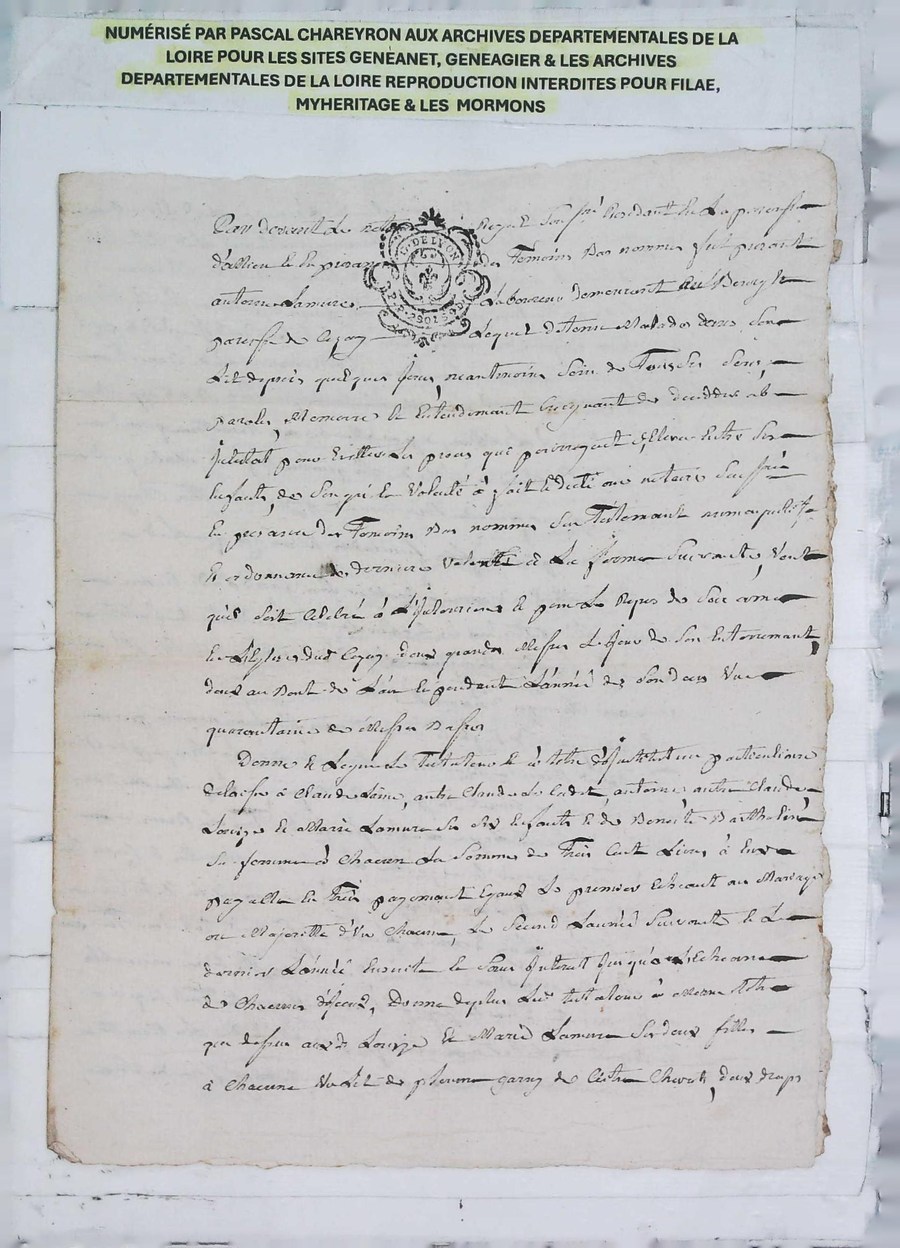 NUMÉRISÉ PAR PASCAL CHAREYRON AUX ARCHIVES DEPARTEMENTALES DE LA
LOIRE POUR LES SITES GENEANET, GENEAGIER & LES ARCHIVES
DEPARTEMENTALES DE LA LOIRE REPRODUCTION INTERDITES POUR FILAE,
MYHERITAGE & LES MORMONS
Par devant le Royal Sousné Residant la paroisse
G. DE LYON
d'allieu et en temoins bas nommes fut present
antoine Lamure Laboureur demeurant au
paroisse de Cezay Lequel detenu Malade dans Son
Lit depuis quelques jours, neantmoins Sein de Tous Ses Sens,
parole, Memoire et Entendement Craignant de decedder ab
intestat pour Eviter les proces que pourroyent Ellever Entre Ses
Enfants, de Son gré et Volonté a fait et dicté au notaire Sousné
En presance des Temoins bas nommes Son Testament
et ordonnance de derniere Volonté en La forme Suivante, Veut
qu'il Soit Celebré a et pour Le Repos de Son ame
En L'Eglise dud Cezay deux grandes Messes Le Jour de Son Enterrement,
deux au bout de L'an et pendant L'année de Son deces Une
quarantaine de Messes basses
Donne et Legue Le Testateur et a titre d'institution particuliaire
delaisse a Claude Laine, autre Claude Le Cadet, antoine, autre Claude
Louize et Marie Lamure Ses Six Enfants et de Benoite
Sa femme a Chacun La Somme de Trois Cent Livres a Eux
payable En Trois payement Egaux Le premier Echeant au Mariage
ou Majorité d'Un Chacun, Le Second L'année Suivante et Le
dernier L'année Ensuite Sans Interest Jusqu'a L'Echeance
de Chacun d'iceux, Donne de plus Led testateur a Meme Titre
que dessus auxd Louize et Marie Lamure Ses deux filles
à Chacune Un Lit de plume garny de Chevet, deux draps